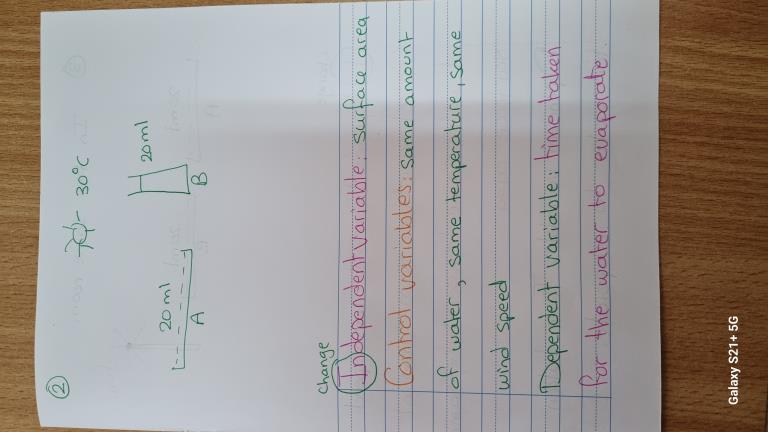 ②
30°C
20ml
A
20ml
B
Change
Independent variable: surface area
Control variables: same amount
of water, same temperature, same
wind speed
Dependent variable: time taken
for the water to evaporate.
Galaxy S21+ 5G